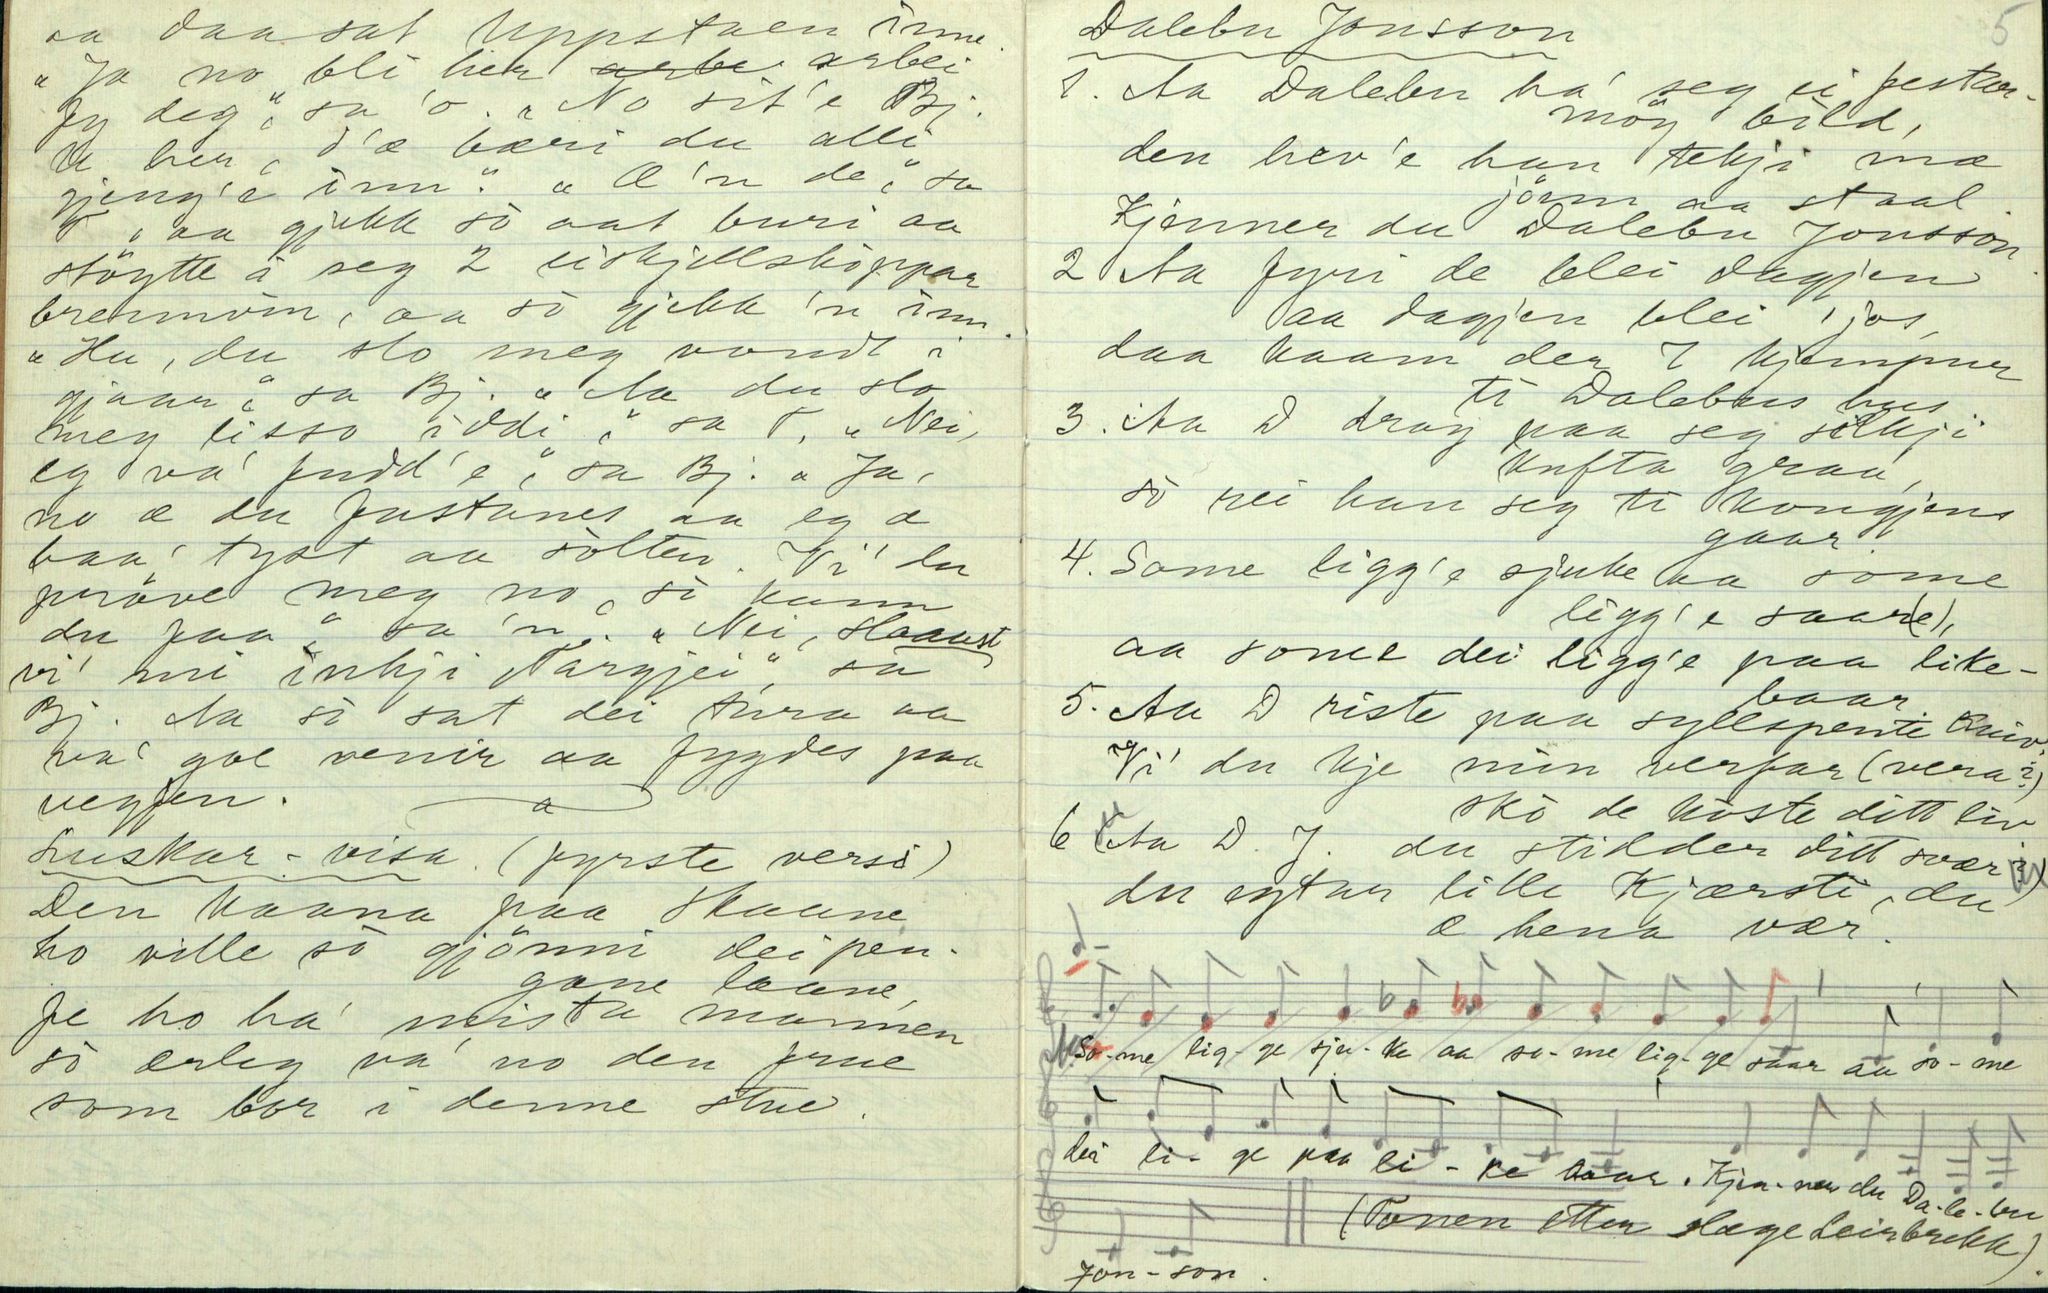 aa daa sat Uppstaen inne.
"Ja no bli her arbei
fy deg", sa 'o. "No sit'e Bj.
U her, d'æ bæri du alli
gjeng'e inn". "Æ'n de", sa
T, aa gjekk sò aat buri aa
stöytte i seg 2 eiskjellskoppar
brennvin, aa sò gjekk 'n inn.
"Hu, du slo meg vondt i
gjaar", sa Bj. "Aa du slo
meg lisso iddi", sa T. "Nei,
eg va' fudd'e", sa Bj. "Ja,
no æ du fustanes aa eg æ
baa' tyst aa sòlten. Vi' du
pröve meg no, sò kann
du faa", sa 'n". "Nei, slaaast
vi' mi inkji Targjei", sa
Bj. Aa sò sat dei tura aa
va' goe venir aa fygdes paa
vegjen.
Luskar-visa. (fyrste versi)
Den kaana paa Skaane
ho ville sò gjönni dei pen-
gane laane,
fe ho ha' mista mannen
sò ærleg va' no den frue
som bor i denne stue.
5
Dalebu Jonsson
1. Aa Dalebu ha' seg ei festar-
möy bild,
den hev'e han tekji mæ
jönn aa staal.
Kjenner du Dalebu Jonsson.
2 Aa fyri de blei dagjen
aa dagjen blei ljos,
daa kaam der 7 kjempur
ti Dalebus hus
3. Aa D drog paa seg silkji
kufta graa,
sò rei han seg ti kongjens
gaar.
4. Some ligg'e sjuke aa some
ligg'e saar(e),
aa some dei ligg'e paa like-
baar.
5. Aa D riste paa syllspente kniv.
Vi' du kje min verfar (vera?)
skò de koste ditt liv
6 Aa D. J. du stidder ditt svær(?)
du sytar lille Kjærsti, du
æ hena vær.
So-me lig-ge sju-ke aa so-me lig-ge saar aa so-me
dei li-ge paa li-ke baar. Kjen-ner du Da-le-bu
Jon-son.
(Tonen etter Slæge Leirbrekk).